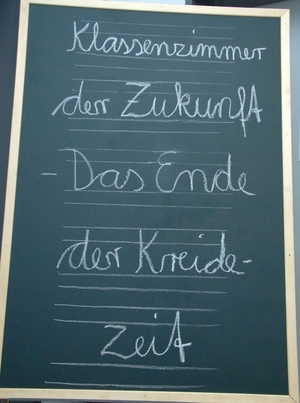 Klassenzimmer
der Zukunft
- Das Ende
der Kreide-
Zeit